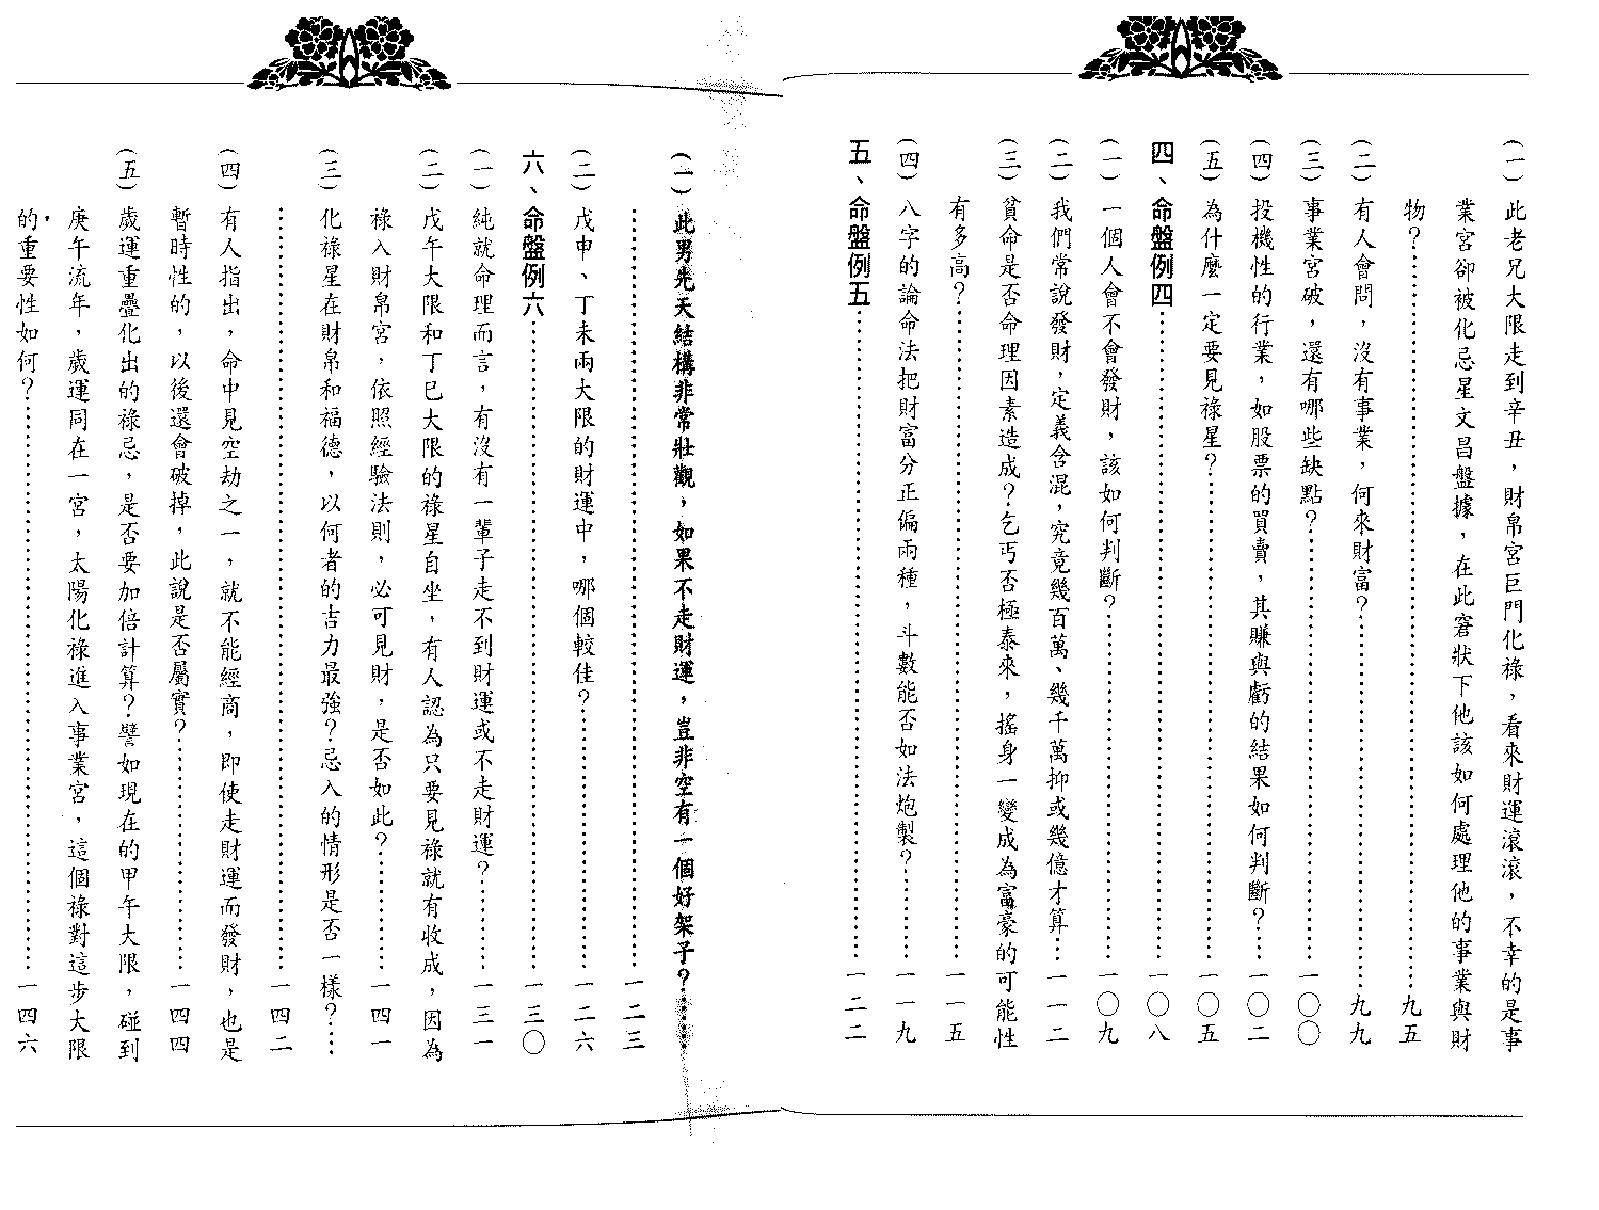 (一)此老兄大限走到辛丑，財帛宮巨門化祿，看來財運滾滾，不幸的是事
業宮卻被化忌星文昌盤據，在此窘狀下他該如何處理他的事業與財
物？……………………………………九五
(二)有人會問，沒有事業，何來財富？……………………九九
(三)事業宮破，還有哪些缺點？……………………一〇〇
(四)投機性的行業，如股票的買賣，其賺與虧的結果如何判斷？……一〇二
(五)為什麼一定要見祿星？……………………一〇五
四、命盤例四……………………………………一〇八
(一)一個人會不會發財，該如何判斷？……………………一〇九
(二)我們常說發財，定義含混，究竟幾百萬、幾千萬抑或幾億才算…一一二
(三)貧命是否命理因素造成？乞丐否極泰來，搖身一變成為富豪的可能性
有多高？……………………………………一一五
(四)八字的論命法把財富分正偏兩種，斗數能否如法炮製？………一一九
五、命盤例五……………………………………一二二
(一)此男先天結構非常壯觀，如果不走財運，豈非空有一個好架子？…
……………………………………一二三
(二)戊申、丁未兩大限的財運中，哪個較佳？……………………一二六
六、命盤例六……………………………………一三〇
(一)純就命理而言，有沒有一輩子走不到財運或不走財運？………一三一
(二)戊午大限和丁巳大限的祿星自坐，有人認為只要見祿就有收成，因為
祿入財帛宮，依照經驗法則，必可見財，是否如此？…………一四一
(三)化祿星在財帛和福德，以何者的吉力最強？忌入的情形是否一樣？……
……………………………………一四二
(四)有人指出，命中見空劫之一，就不能經商，即使走財運而發財，也是
暫時性的，以後還會破掉，此說是否屬實？……………………一四四
(五)歲運重疊化出的祿忌，是否要加倍計算？譬如現在的甲午大限，碰到
庚午流年，歲運同在一宮，太陽化祿進入事業宮，這個祿對這步大限
的重要性如何？……………………………………一四六